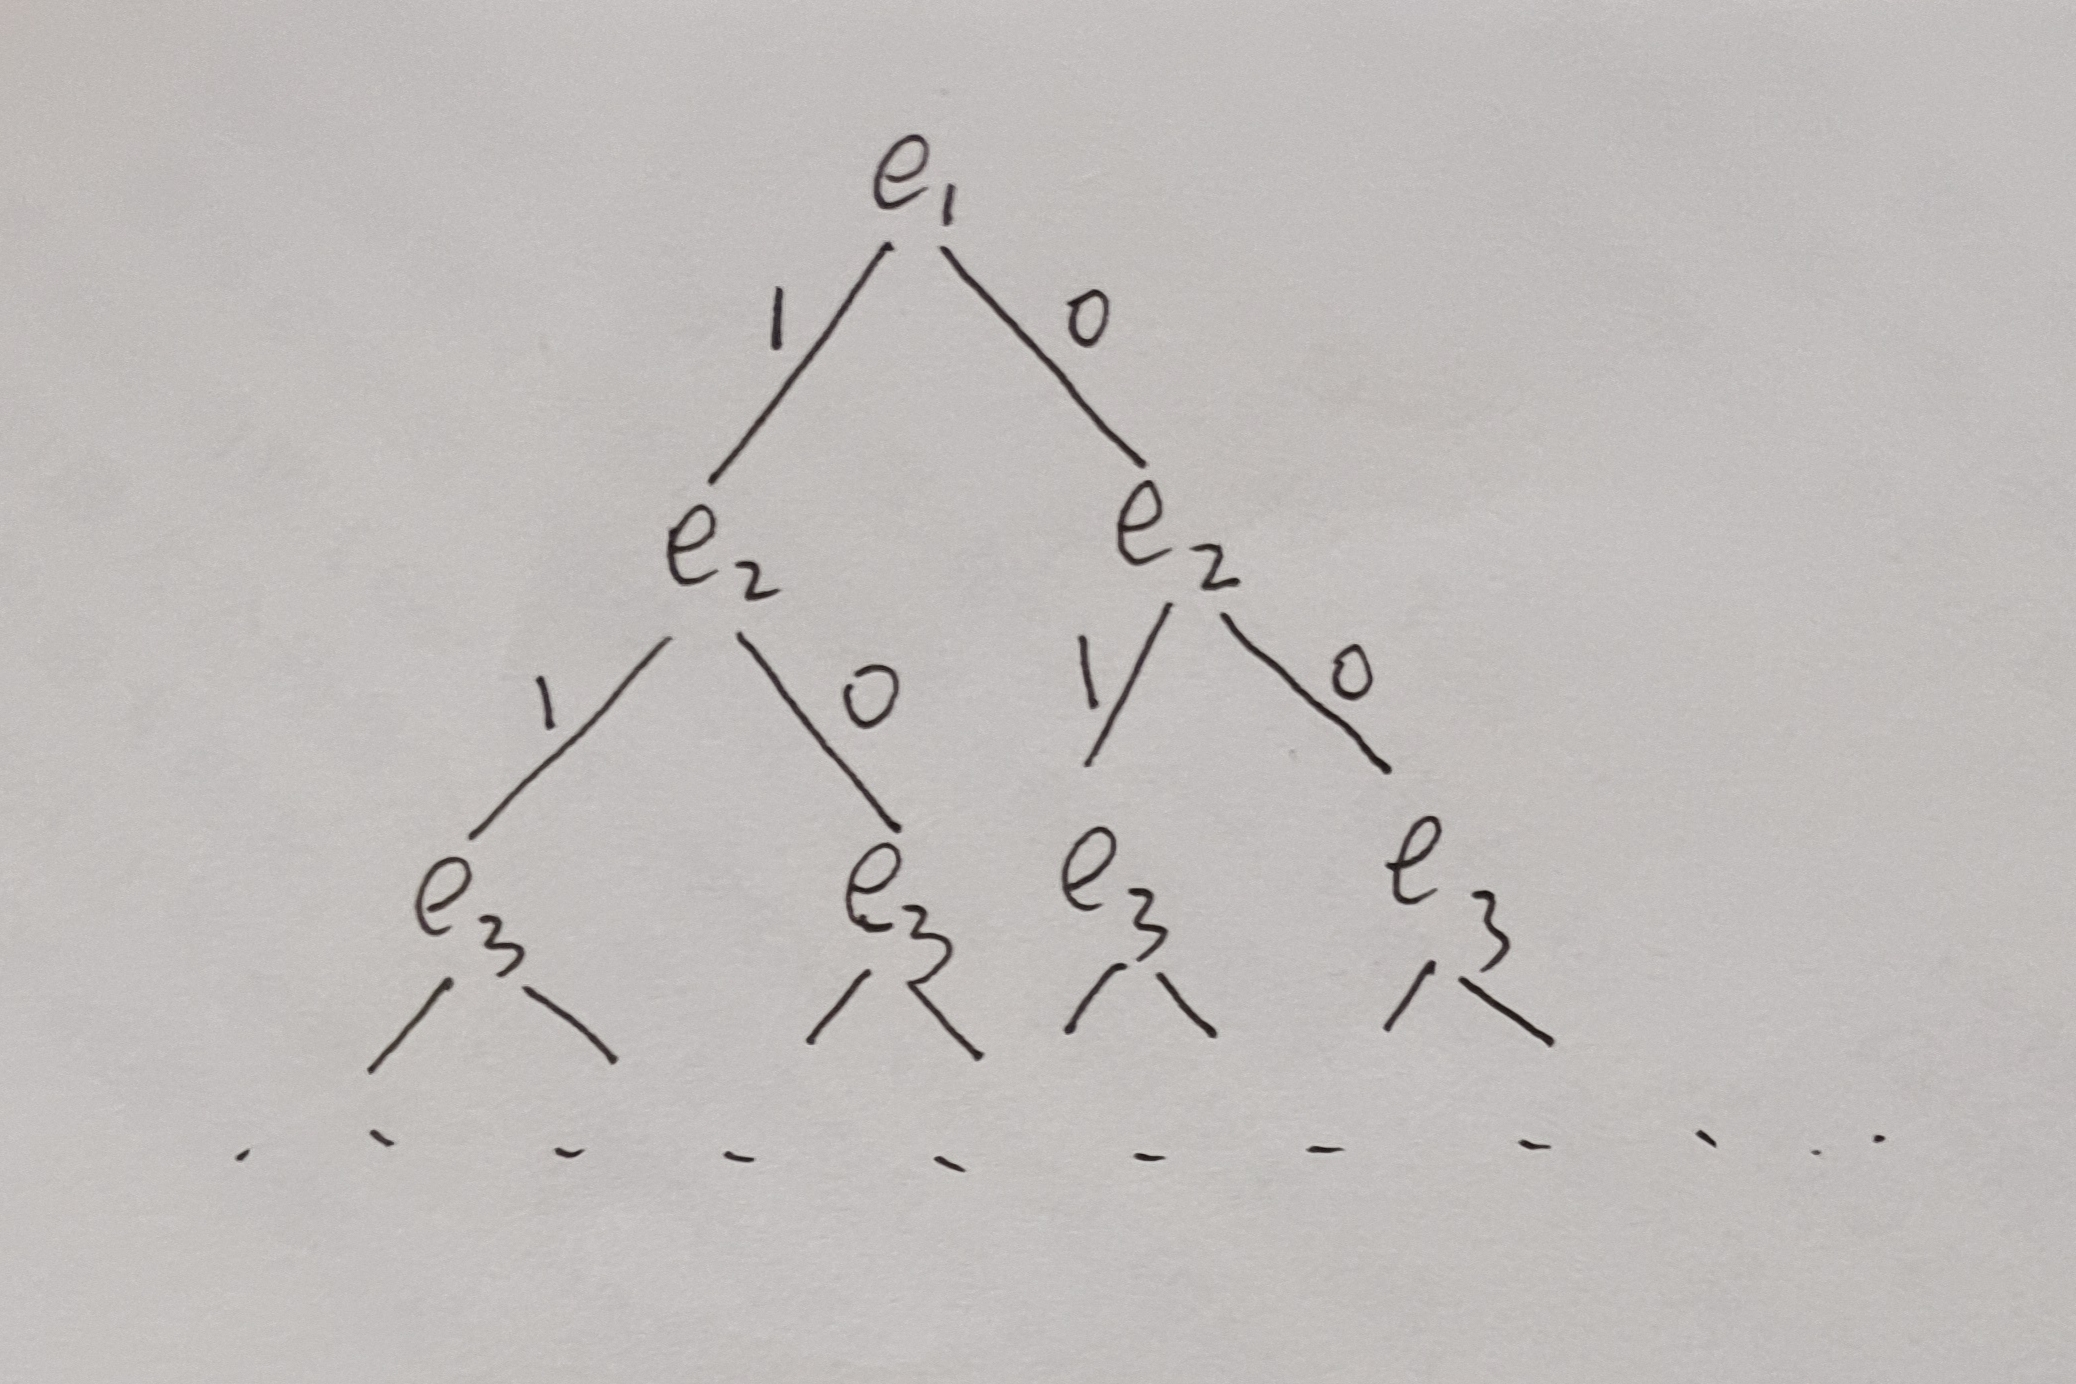 e₁
1 0
e₂ e₂
1 0 1 0
e₃ e₃ e₃ e₃